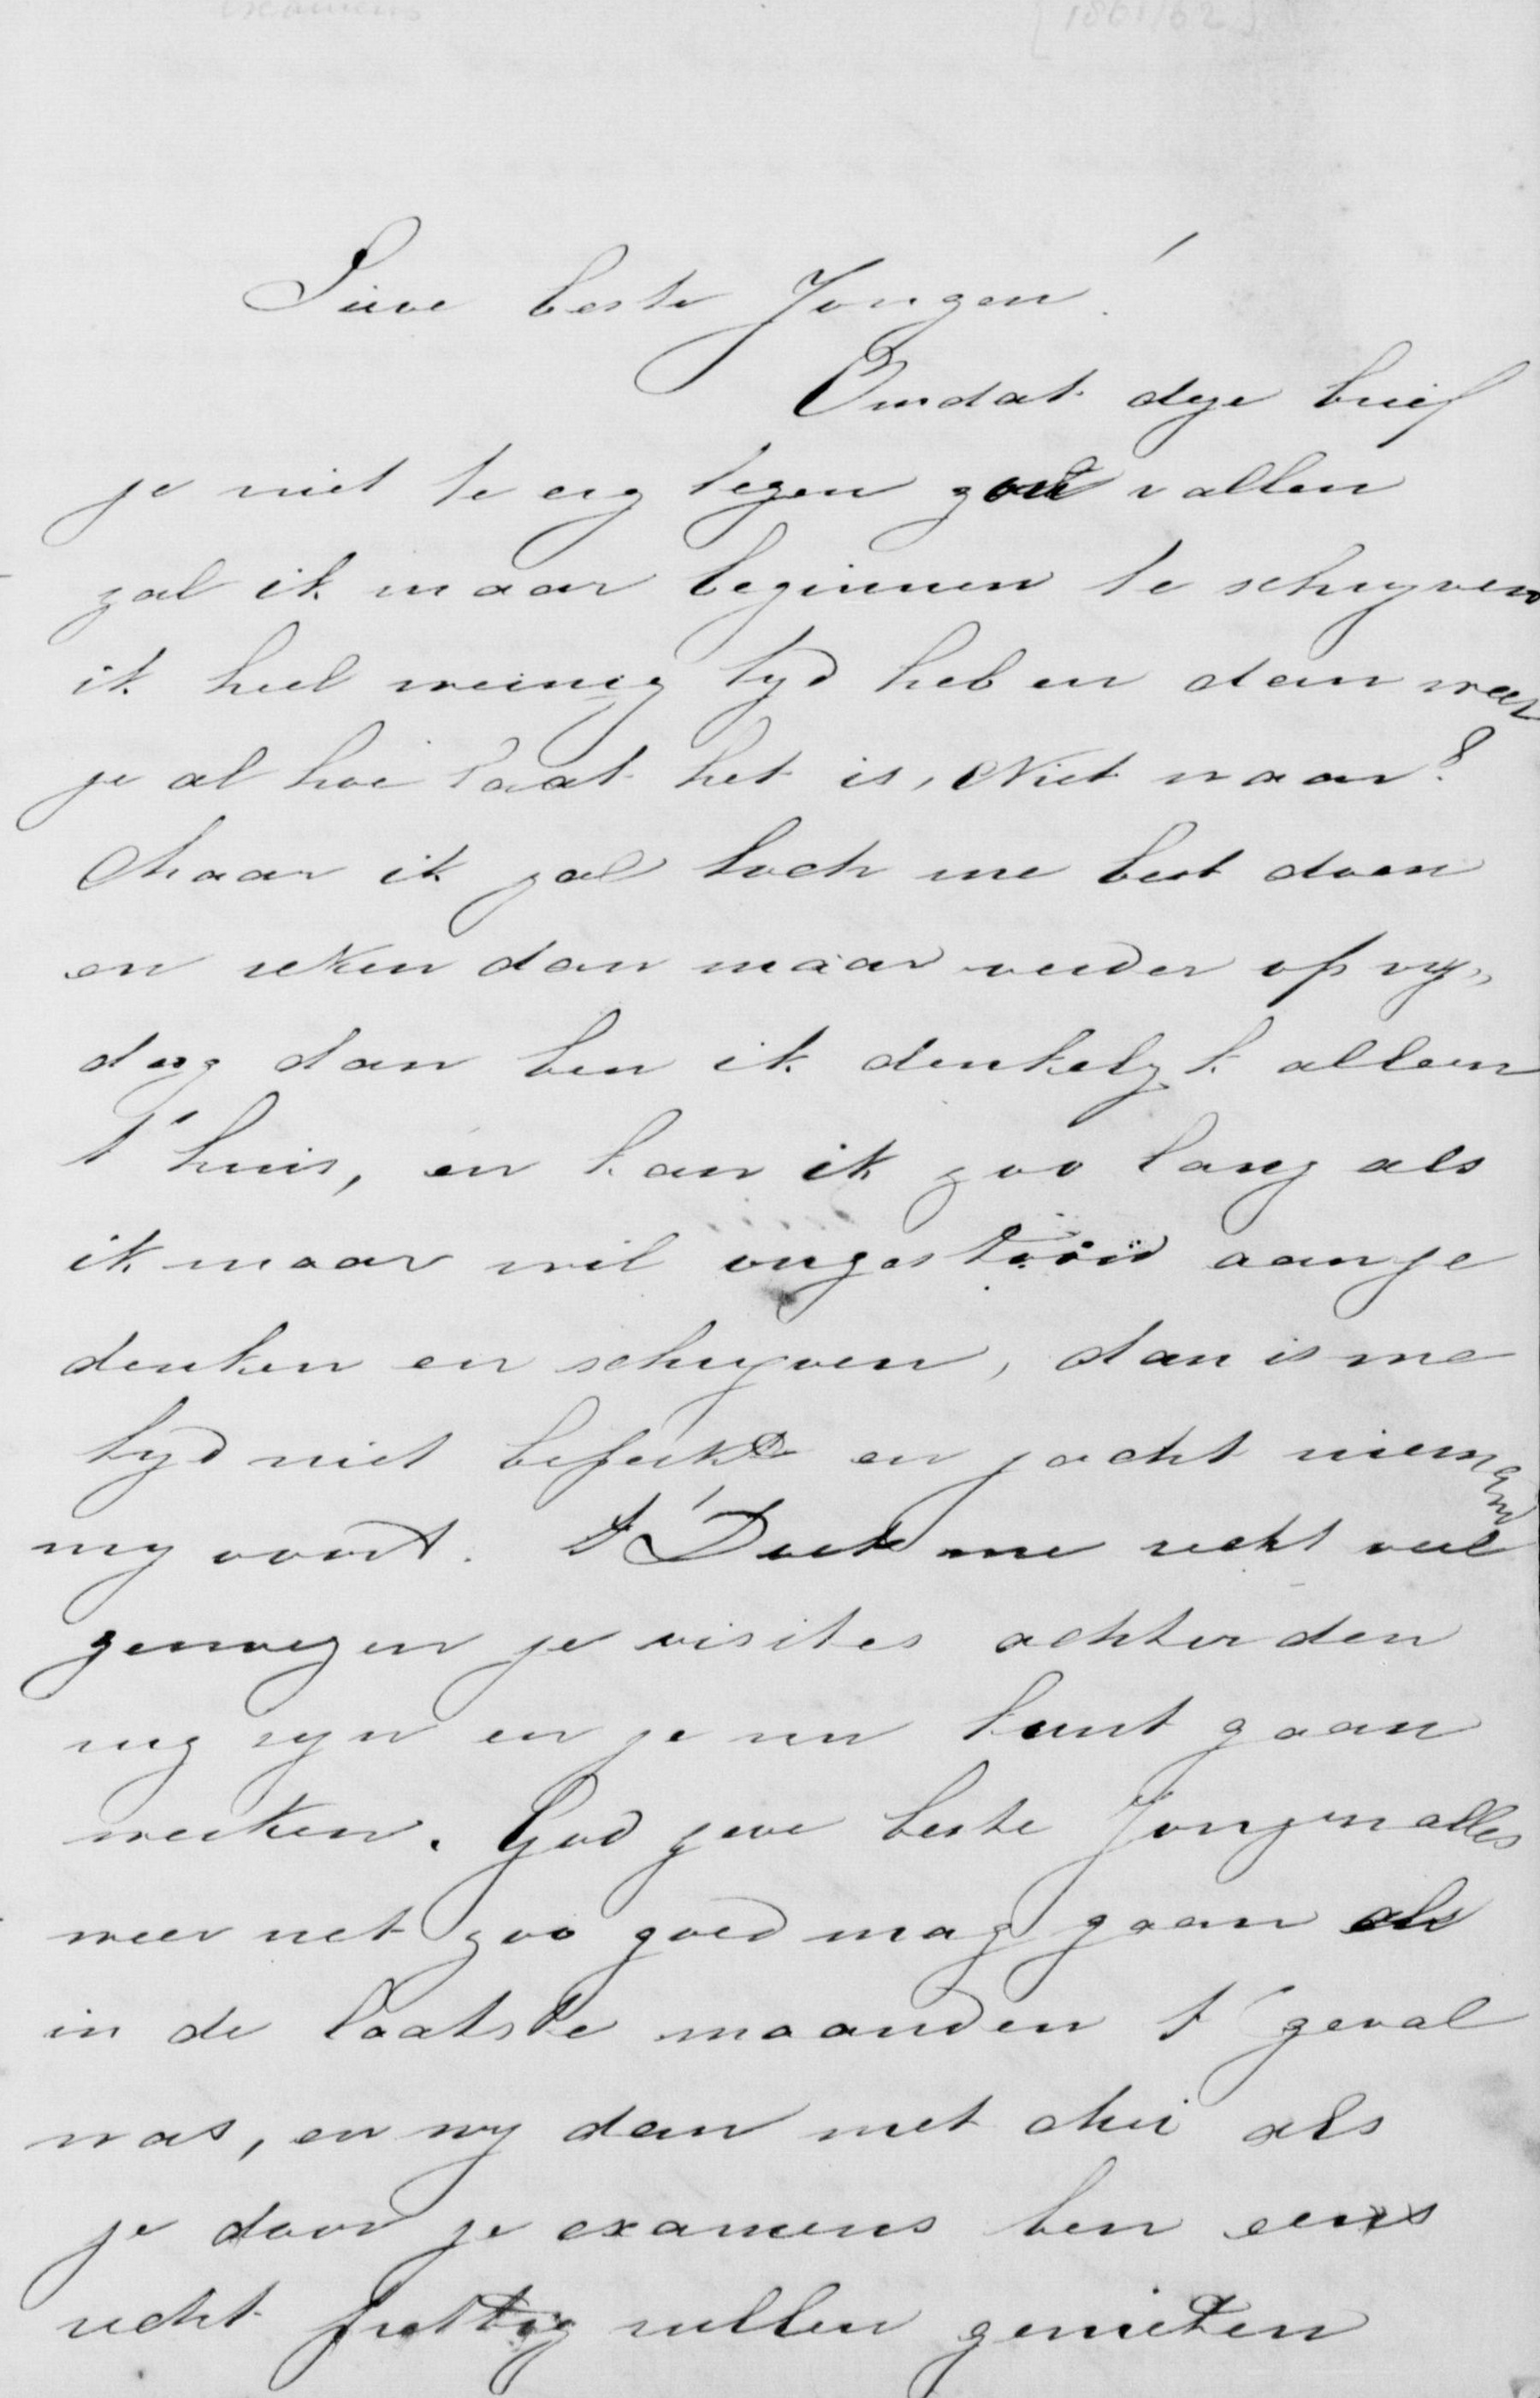 examens [1861/62]
Lieve beste Jongen!
Omdat deze brief
je niet te erg tegen zou vallen
zal ik maar beginnen te schryven
ik heel weinig tyd heb en dan weet
je al hoe laat het is, Niet waar?
Maar ik zal toch me best doen
en reken dan maar verder op vry„
dag dan ben ik denkelyk alleen
t'huis, en kan ik zoo lang als
ik maar wil ongestoord aan je
denken en schryven, dan is me
tyd niet beperkt en jacht niemand
my voort. t'Doet me recht veel
genoegen je visites achter den
rug zyn en je nu kunt gaan
werken. God geve beste Jongen alles
weer net zoo goed mag gaan als
in de laatste maanden t'geval
was, en wy dan met Mei als
je door je examens ben eens
recht prettig zullen genieten